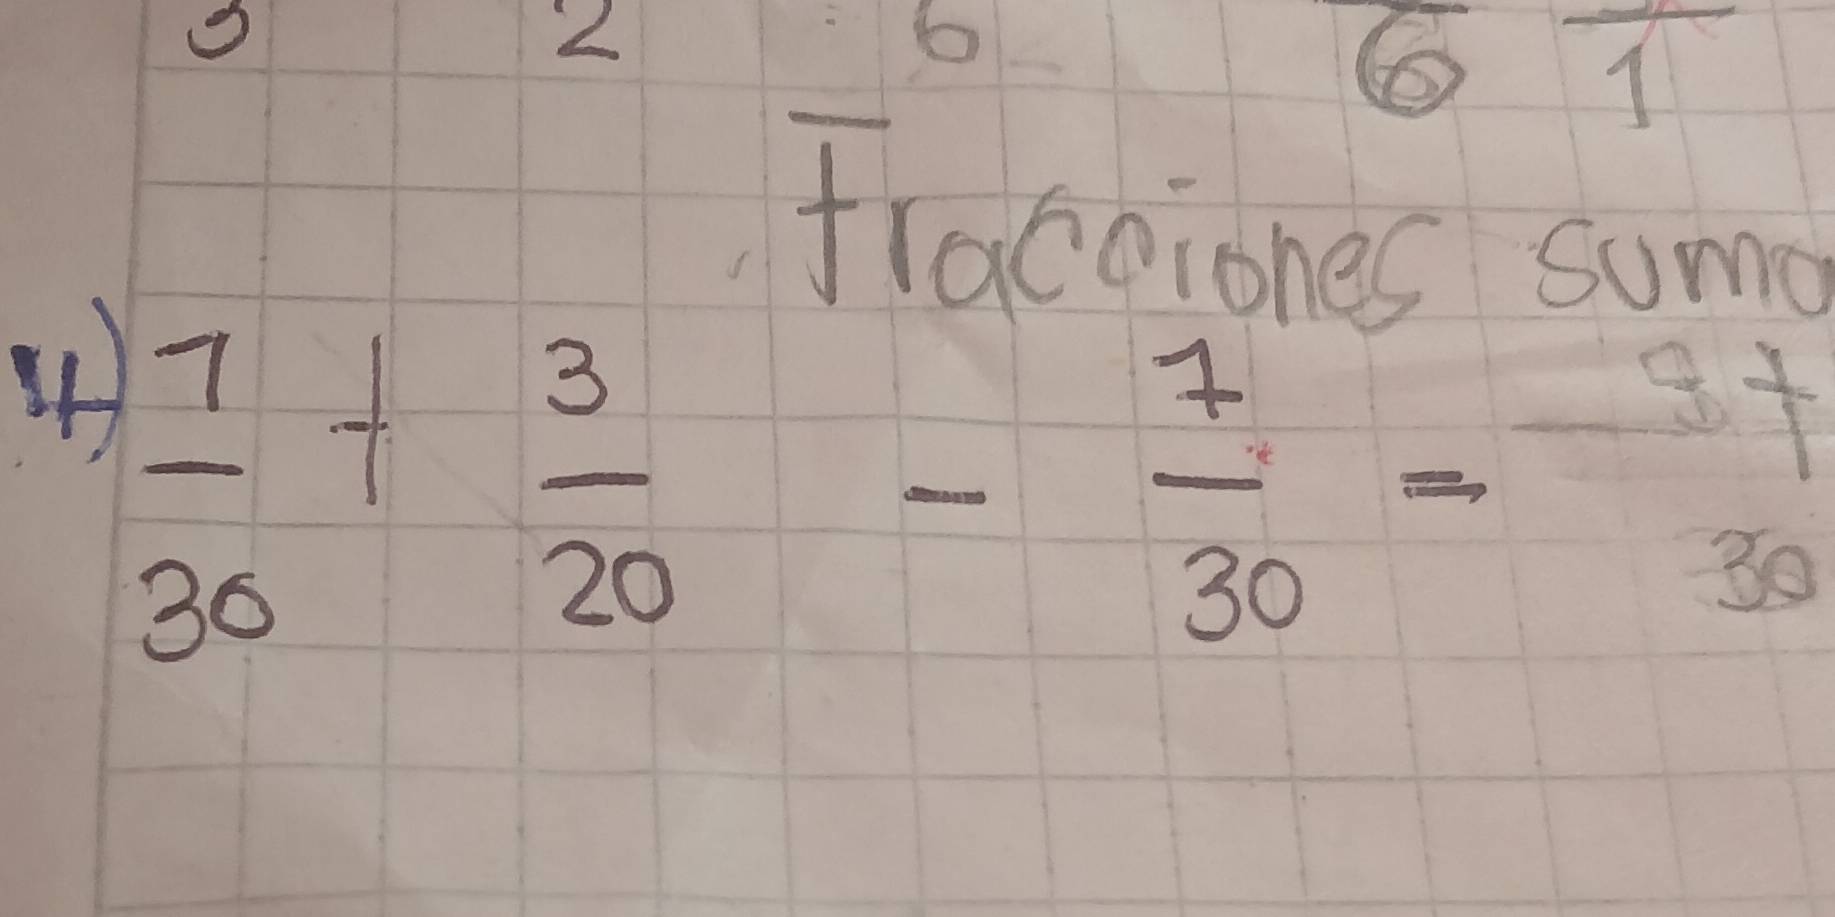 3 2 6 6 1
fracciones suma
4) 1/30 + 3/20 - 7/30 = 37/30